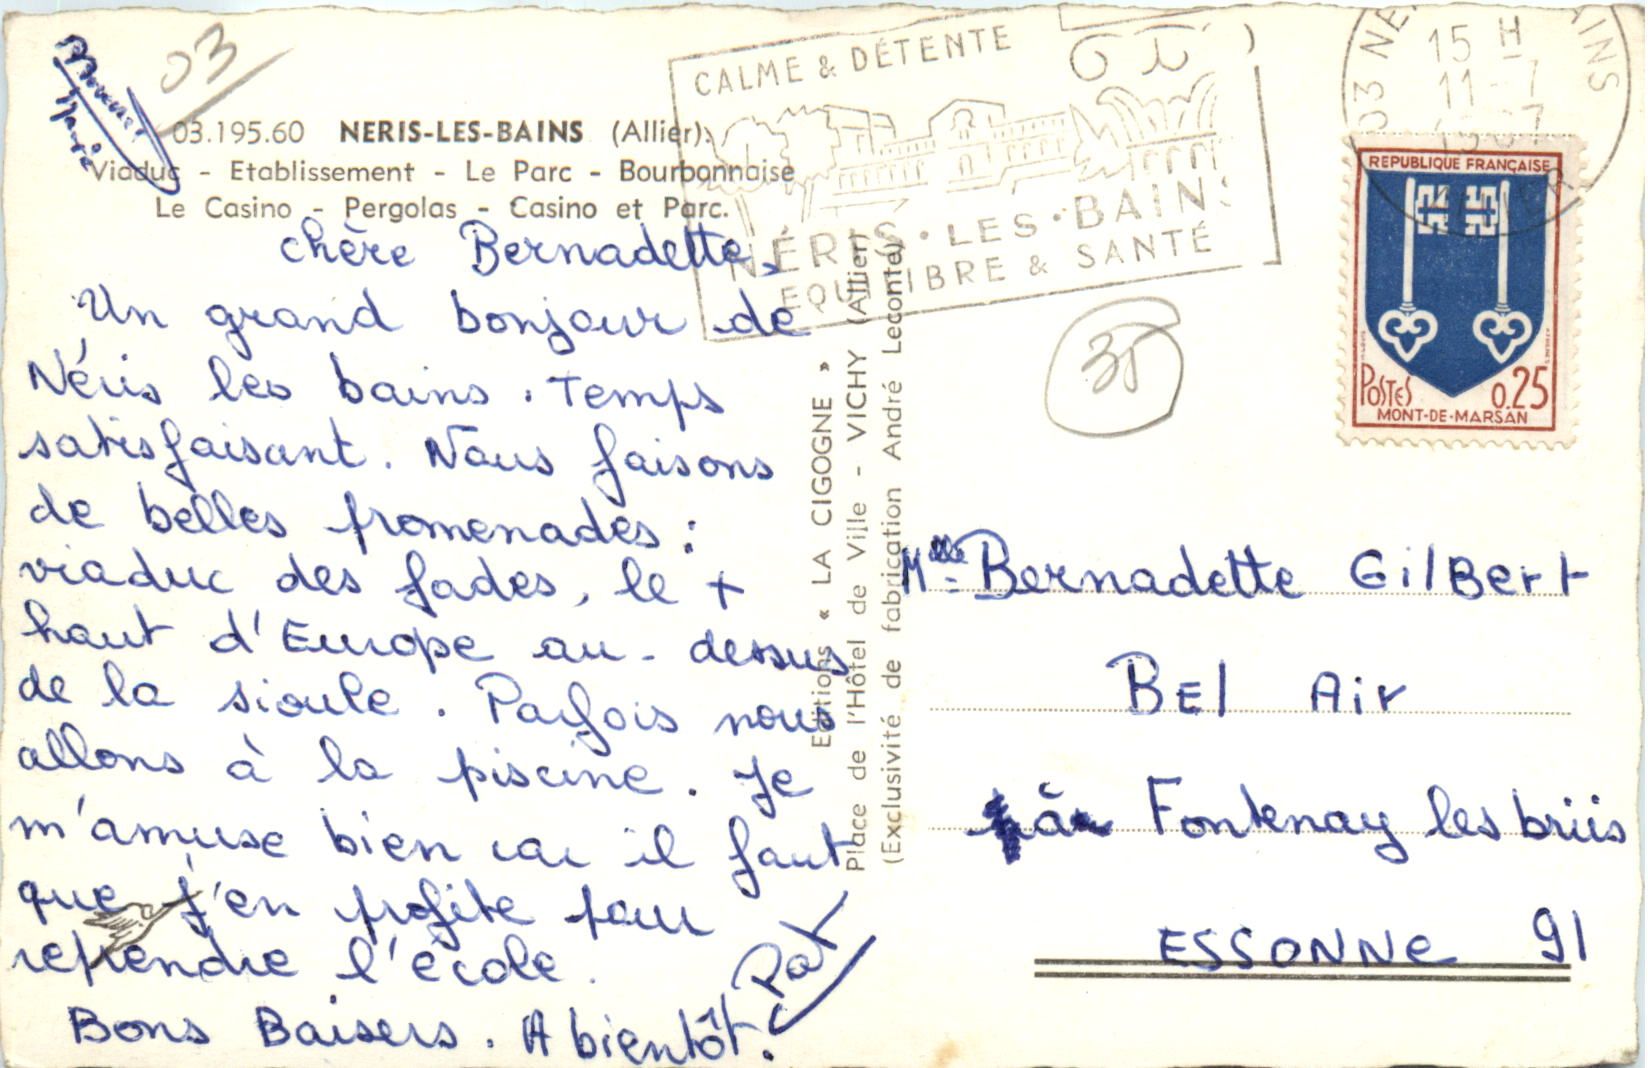 03
Bonnet
Marie
03.195.60 NERIS-LES-BAINS (Allier).
Viaduc - Etablissement - Le Parc - Bourbonnaise
Le Casino - Pergolas - Casino et Parc.
chère Bernadette,
Un grand bonjour de
Néris les bains. Temps
satisfaisant. Nous faisons
de belles promenades :
viaduc des fades, le +
haut d'Europe au-dessus
de la sioule. Parfois nous
allons à la piscine. Je
m'amuse bien car il faut
que j'en profite pour
reprendre l'école.
Bons Baisers. A bientôt.
Pat
Editions « LA CIGOGNE »
Place de l'Hôtel de Ville - VICHY (Allier)
(Exclusivité de fabrication André Leconte)
CALME & DÉTENTE
NÉRIS·LES·BAINS
EQUILIBRE & SANTÉ
15 H
11-7
REPUBLIQUE FRANÇAISE
POSTES 0.25
MONT-DE-MARSAN
35
Mlle Bernadette GilBert
BEl Air
à Fontenay les briis
ESSONNE 91